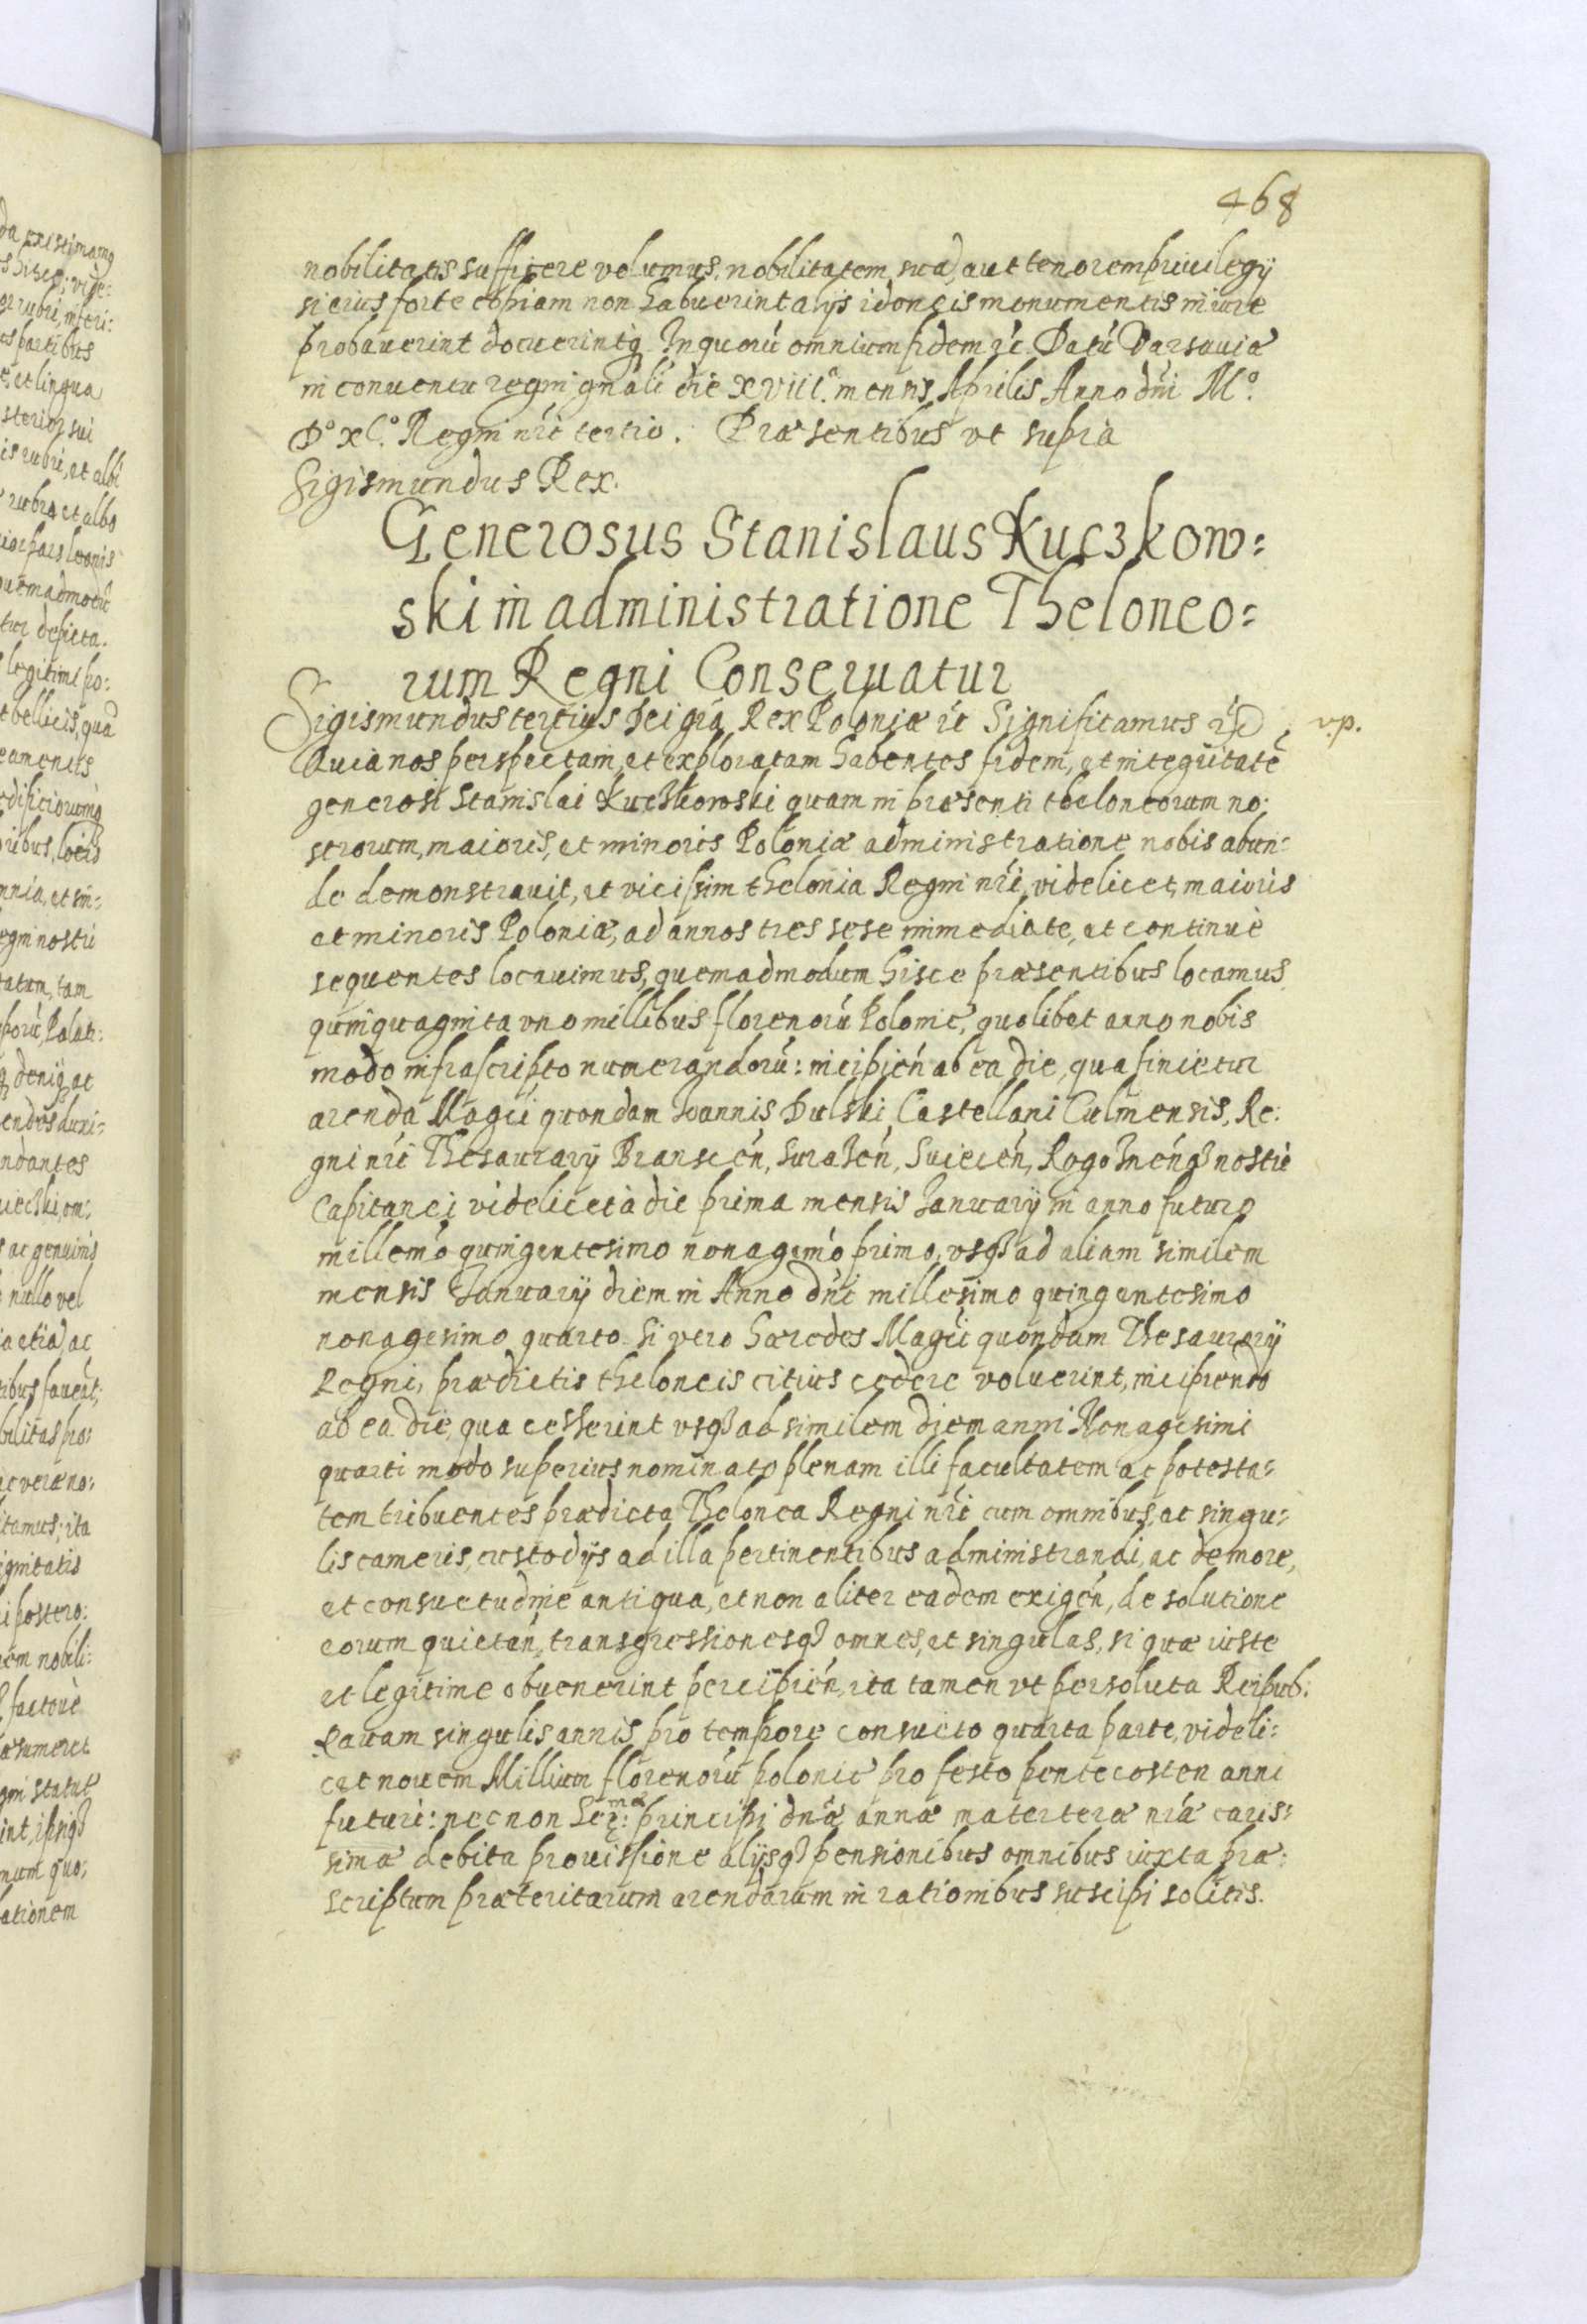 468
nobilitatis sufficere volumus, nobilitatem suā, aut tenorem priuilegÿ
si eius forte copiam non habuerint alÿs idoneis monumentis in iure
probauerint docuerintq₃ In quorū omnium fidem rć. Datū Varsauiæ
in conuentu regni gnāli die XVIIIᵃ. mensis Aprilis Anno dńi Mº.
Dº XCº. Regni nrī tertio. Præsentibus vt supra
Sigismundus Rex.
Generosus Stanislaus Kuczkow:
ski in administratione Theloneo:
rum Regni Conseruatur
Sigismundus tertius Dei gr̃a Rex Poloniæ rć Significamus rć
v.p.
Quia nos perspectam, et exploratam habentes fidem, et integritatē
generosi Stanislai Kuczkowski quam in præsenti theloneorum no:
strorum, maioris, et minoris Poloniæ administratione nobis abun:
de demonstrauit, et vicissim thelonia Regni nrī, videlicet, maioris
et minoris Poloniæ, ad annos tres sese immediate, et continuè
sequentes locauimus, quemadmodum hisce præsentibus locamus
quinquaginta vno millibus florenorū Polonic̃, quolibet anno nobis
modo infrascripto numerandorū: incipień ab ea die, qua finietur
arenda Magci quondam Ioannis Dulski Castellani Culmensis, Re:
gni nrī Thesaurarÿ Branscén, Surazén, Suiecén, Rogoznénq₃ nostri
Capitanei videlicet à die prima mensis Januarÿ in anno futuro
millemó quingentesimo nonagemó primo, vsq₃ ad aliam similem
mensis Januarÿ diem in Anno dńi millesimo quingentesimo
nonagesimo quarto. Si vero hæredes Magci quondam Thesaurarÿ
Regni, prædictis theloneis citius cedere voluerint, incipiendo
ab ea die, qua cesserint vsq₃ ad similem diem anni Nonagesimi
quarti modo superius nominato plenam illi facultatem ac potesta:
tem tribuentes prædicta Thelonea Regni nrī cum omnibus, ac singu:
lis cameris, custodÿs ad illa pertinentibus administrandi, ac de more,
et consuetudine antiqua, et non aliter eadem exigén, de solutione
eorum quietań, transgressionesq₃ omnes, et singulas, si quæ iuste
et legitime obuenerint percipień, ita tamen vt persoluta Reipub:
Rauam singulis annis pro tempore consueto quarta parte, videli:
cet nouem Millium florenorū polonic̃ pro festo pentecosten anni
futuri: nec non Serᵐᵃᵉ: principi dnæ annæ materteræ nræ caris:
simæ debita prouissione alÿsq₃ pensionibus omnibus iuxta præ:
scriptum præteritarum arendarum in rationibus suscipi solitis.